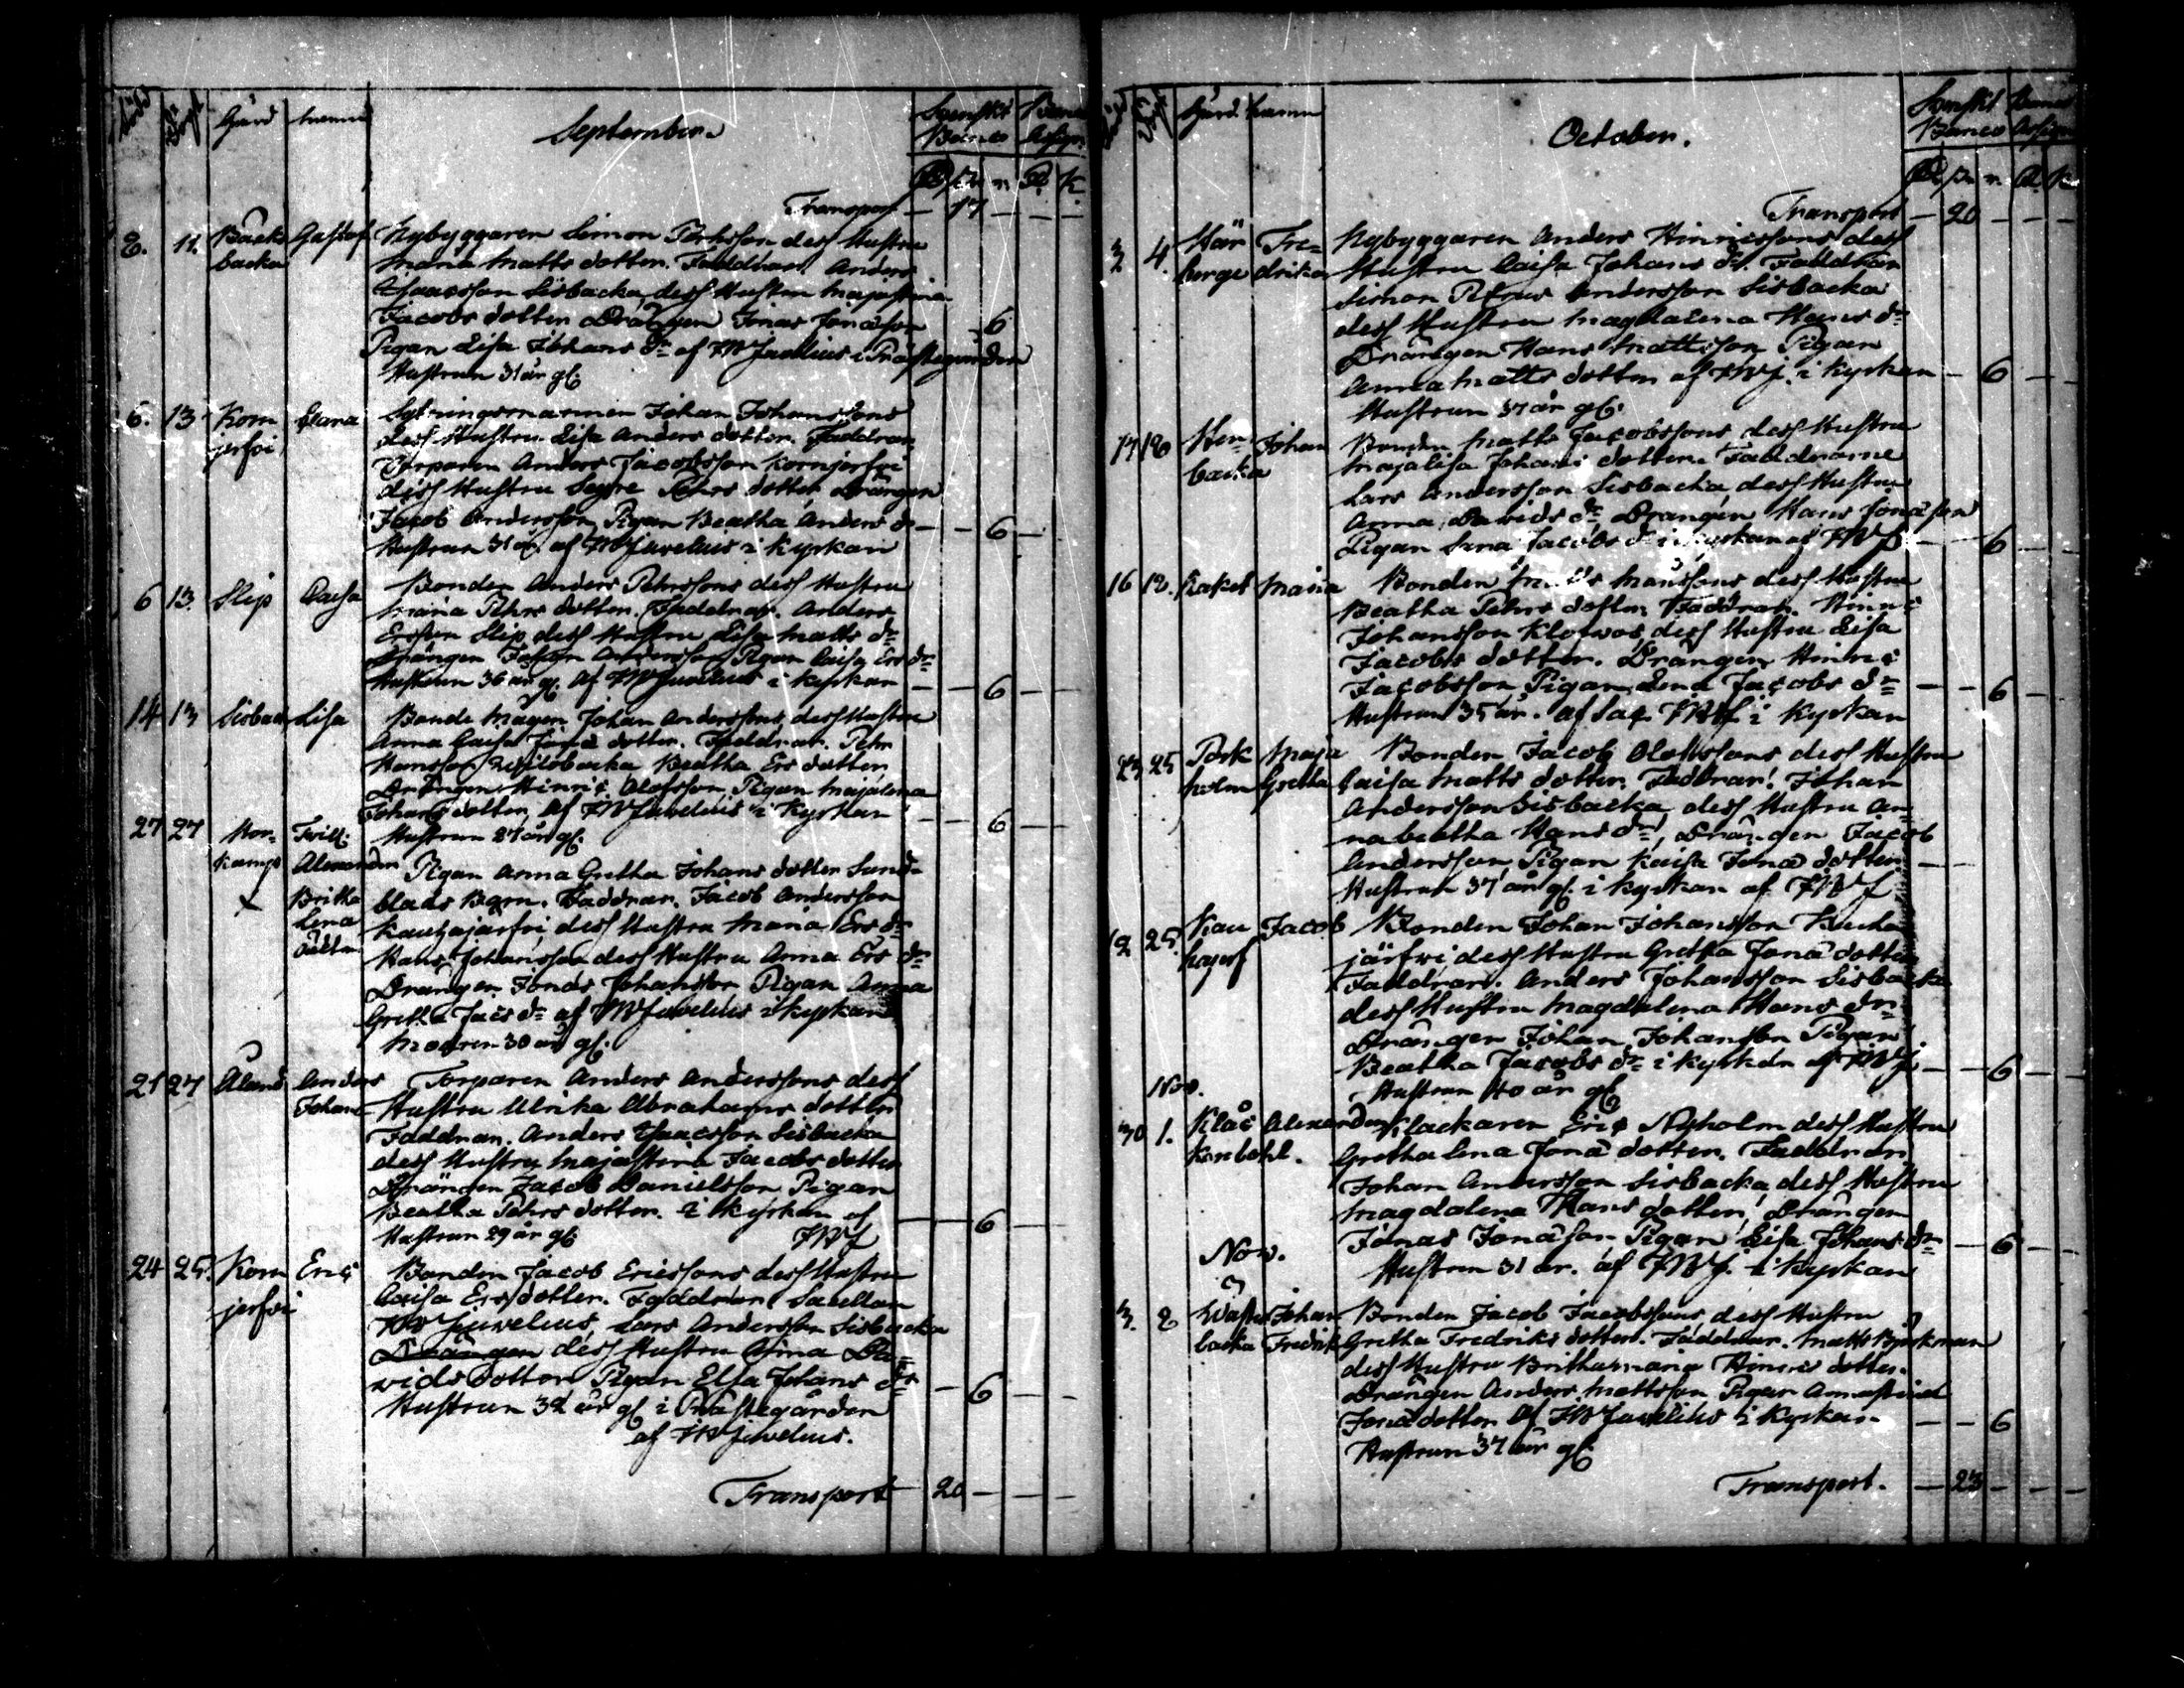 Gård Namn September. Svenskt Banco
Rd sk r. R. K.
Transport — 17 — — —
8. 11. Back Gustaf Nybyggaren Simon Pehrsson dess Hustru
backa Maria Matts dotter. Faddrar. Anders
Isaacsson Sisbacka dess Hustru Majastina
Jacobs dotter Drängen Jonas Jonasson 6
Pigan Lisa Johans dr af JWJuvelius i Prästegården
Hustrun 31 år gl.
6. 13 Korn Sytningsmannen Johan Johanssons
jerfvi dess Hustru Lisa Anders dotter. Faddrar.
Torparen Anders Jacobsson Kornjerfvi
dess Hustru Pehrs dotter Drängen
Jacob Andersson, Pigan Beatha Anders dr — — 6 —
Hustrun 31 år. af JWJuvelius i Kyrkan
6 13. Slip Caisa Bonden Anders Pehrssons dess Hustru
Maria Pehrs dotter. Faddrar. Anders
Ersson Slip dess Hustru Lisa Matts dr
Drängen Johan Andersson Pigan Caisa Ers dr
Hustrun 36 år gl. af JWJuvelius i Kyrkan — — 6 — —
14 13 Sisback Lisa Bonde Mågen Johan Anderssons dess Hustru
Anna Caisa Jona dotter. Faddrar. Pehr
Hansson Beatha Ers dotter
Drängen Hinric Olofsson Pigan Majalena
Johans dotter af JWJuvelius i Kyrkan — — 6 — —
27 27 Hustrun 27 år gl.
Kamp Alexander Pigan Anna Gretha Johans dotter Sund-
x Britha blads Barn. Faddrar. Jacob Andersson
lena Kauhajärfvi dess Hustru Maria Ers dr
Hans Johansson dess Hustru Anna Ers dr
Drängen Jonas Johansson Pigan Anna
Gretha Jacs dr af JWJuvelius i Kyrkan
Modren 30 år gl.
21 27 Åland Anders Torparen Anders Anderssons dess
Johan Hustru Ulrika Abrahams dotter
Faddrar. Anders Isaacsson Sisbacka
dess Hustru Majastina Jacobs dotter
Drängen Jacob Danielsson Pigan
Beatha Pehrs dotter. i Kyrkan af — — 6 — —
Hustrun 29 år gl. JWJ
24 25. Korn Eric Bonden Jacob Ericssons dess Hustru
jerfvi Caisa Ers dotter. Faddrar
JWJuvelius, Lars Andersson Sisbacka
Drängen dess Hustru Anna Da-
vids dotter Pigan Elsa Johans dr — 6 — —
Hustrun 32 år gl i Prästegården
af JWJuvelius.
Transport — 20 — — —
Gård Namn October. Svenskt Banco
Transport — 20 — — —
3 4. Här Fre- Nybyggaren Anders Hinricssons dess
berge drika Hustru Caisa Johans dr. Faddrar
Simon Petrus Andersson Sisbacka
dess Hustru Magdalena Hans dr
Drängen Hans Mattsson Pigan
Anna Matts dotter af JWJ. i Kyrkan — 6 — —
Hustrun 37 år gl.
17 18 Hen- Johan Bonden Matts Jacobssons dess Hustru
backa Majalisa Johans dotter. Faddrarne
Lars Andersson Sisbacka dess Hustru
Anna Davids dr Drängen Hans Jonasson
Pigan Sana Jacobs dr i Kyrkan af JWJ — — 6
16 18. Maria Bonden dess Hustru
Beatha Pehrs dotter Faddrar. Hinric
Johansson dess Hustru Lisa
Jacobs dotter. Drängen Hinric
Jacobsson, Pigan Lena Jacobs dr — — 6 —
Hustrun 35 år. af JWJ i Kyrkan
23 25 Pork Maja Bonden Jacob Olofssons dess Hustru
holm Gretha Caisa Matts dotter. Faddrar. Johan
Andersson Sisbacka dess Hustru An-
nabeatha Hans dr, Drängen Jacob
Andersson Pigan Kaisa Jona dotter — —
Hustrun 37 år gl. i Kyrkan af JWJ
19 25. Kau Jacob Bonden Johan Johansson Kauha
hajerf järfvi dess Hustru Gretha Jona dotter
Faddrar. Anders Johansson Sisbacka
dess Hustru Magdalena Hans dr
Drängen Johan Johansson Pigan
Beatha Jacobs dr i Kyrkan af JWJ — — 6 — —
Nov. Hustrun 40 år gl
30 1. Klåc Alexander Klackaren Eric Nyholm dess Hustru
karbohl. Grethalena Jona dotter. Faddrar
Johan Andersson Sisbacka dess Hustru
Magdalena Hans dotter, Drängen
Jonas Jonasson Pigan Lisa Johans dr — 6 —
Nov. Hustrun 31 år. af JWJ. i Kyrkan
3. 2 Wäster Johan Bonden Jacob Jacobssons dess Hustru
backa Fredrik Gretha Fredriks dotter. Faddrar. Matts Björkman
dess Hustru Brithamaria Hinrics dotter.
Drängen Anders Mattsson Pigan Annastina
Jona dotter af JWJuvelius i Kyrkan — — 6
Hustrun 37 år gl.
Transport. — 23 — — —